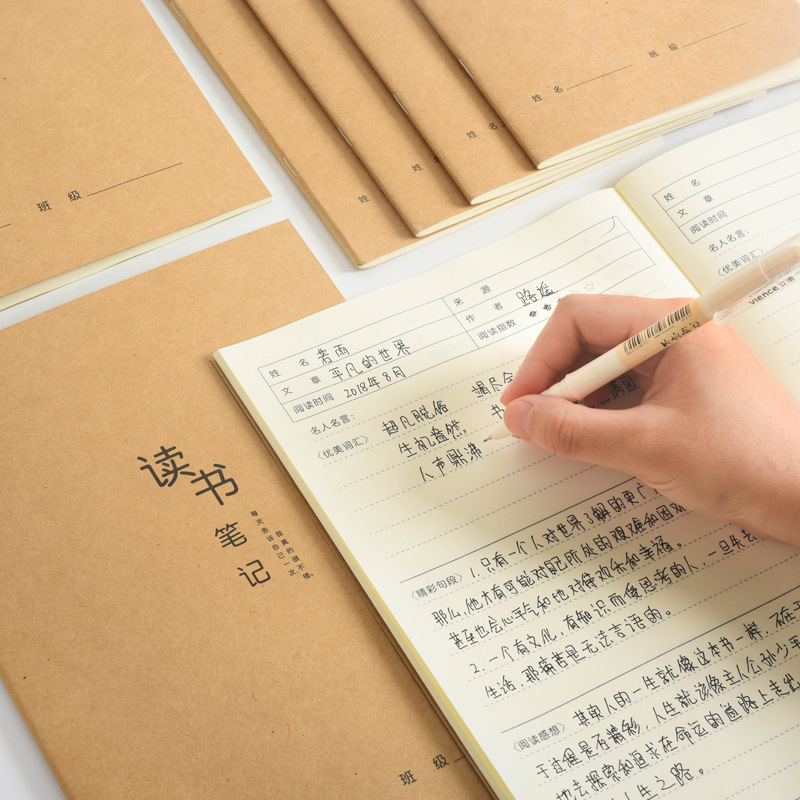 班 级
姓
姓 名
姓 名
姓 名 班 级
读书
笔记
每天告诉自己一次,
我真的很不错。
班 级
姓 名 若雨
来 源
文 章 平凡的世界
作 者 路遥
阅读时间 2018年8月
阅读指数
名人名言:
《优美词汇》 超凡脱俗
生机盎然, 书
人声鼎沸
《精彩句段》 1.只有一个人对世界了解的更广
那么,他才有可能对自己所处的艰难和困
甚至也会心平气和地对待欢乐和幸福。
2.一个有文化,有知识而使思考的人,一旦失去
生活,那痛苦是无法言语的。
《阅读感想》 其实人的一生就像这本书一样,
于过程是否精彩,人生就该像主人公孙少平
他去探索和追求在命运的道路上走出
人生之路。
姓 名
文 章
阅读时间
名人名言:
《优美词汇》
vience